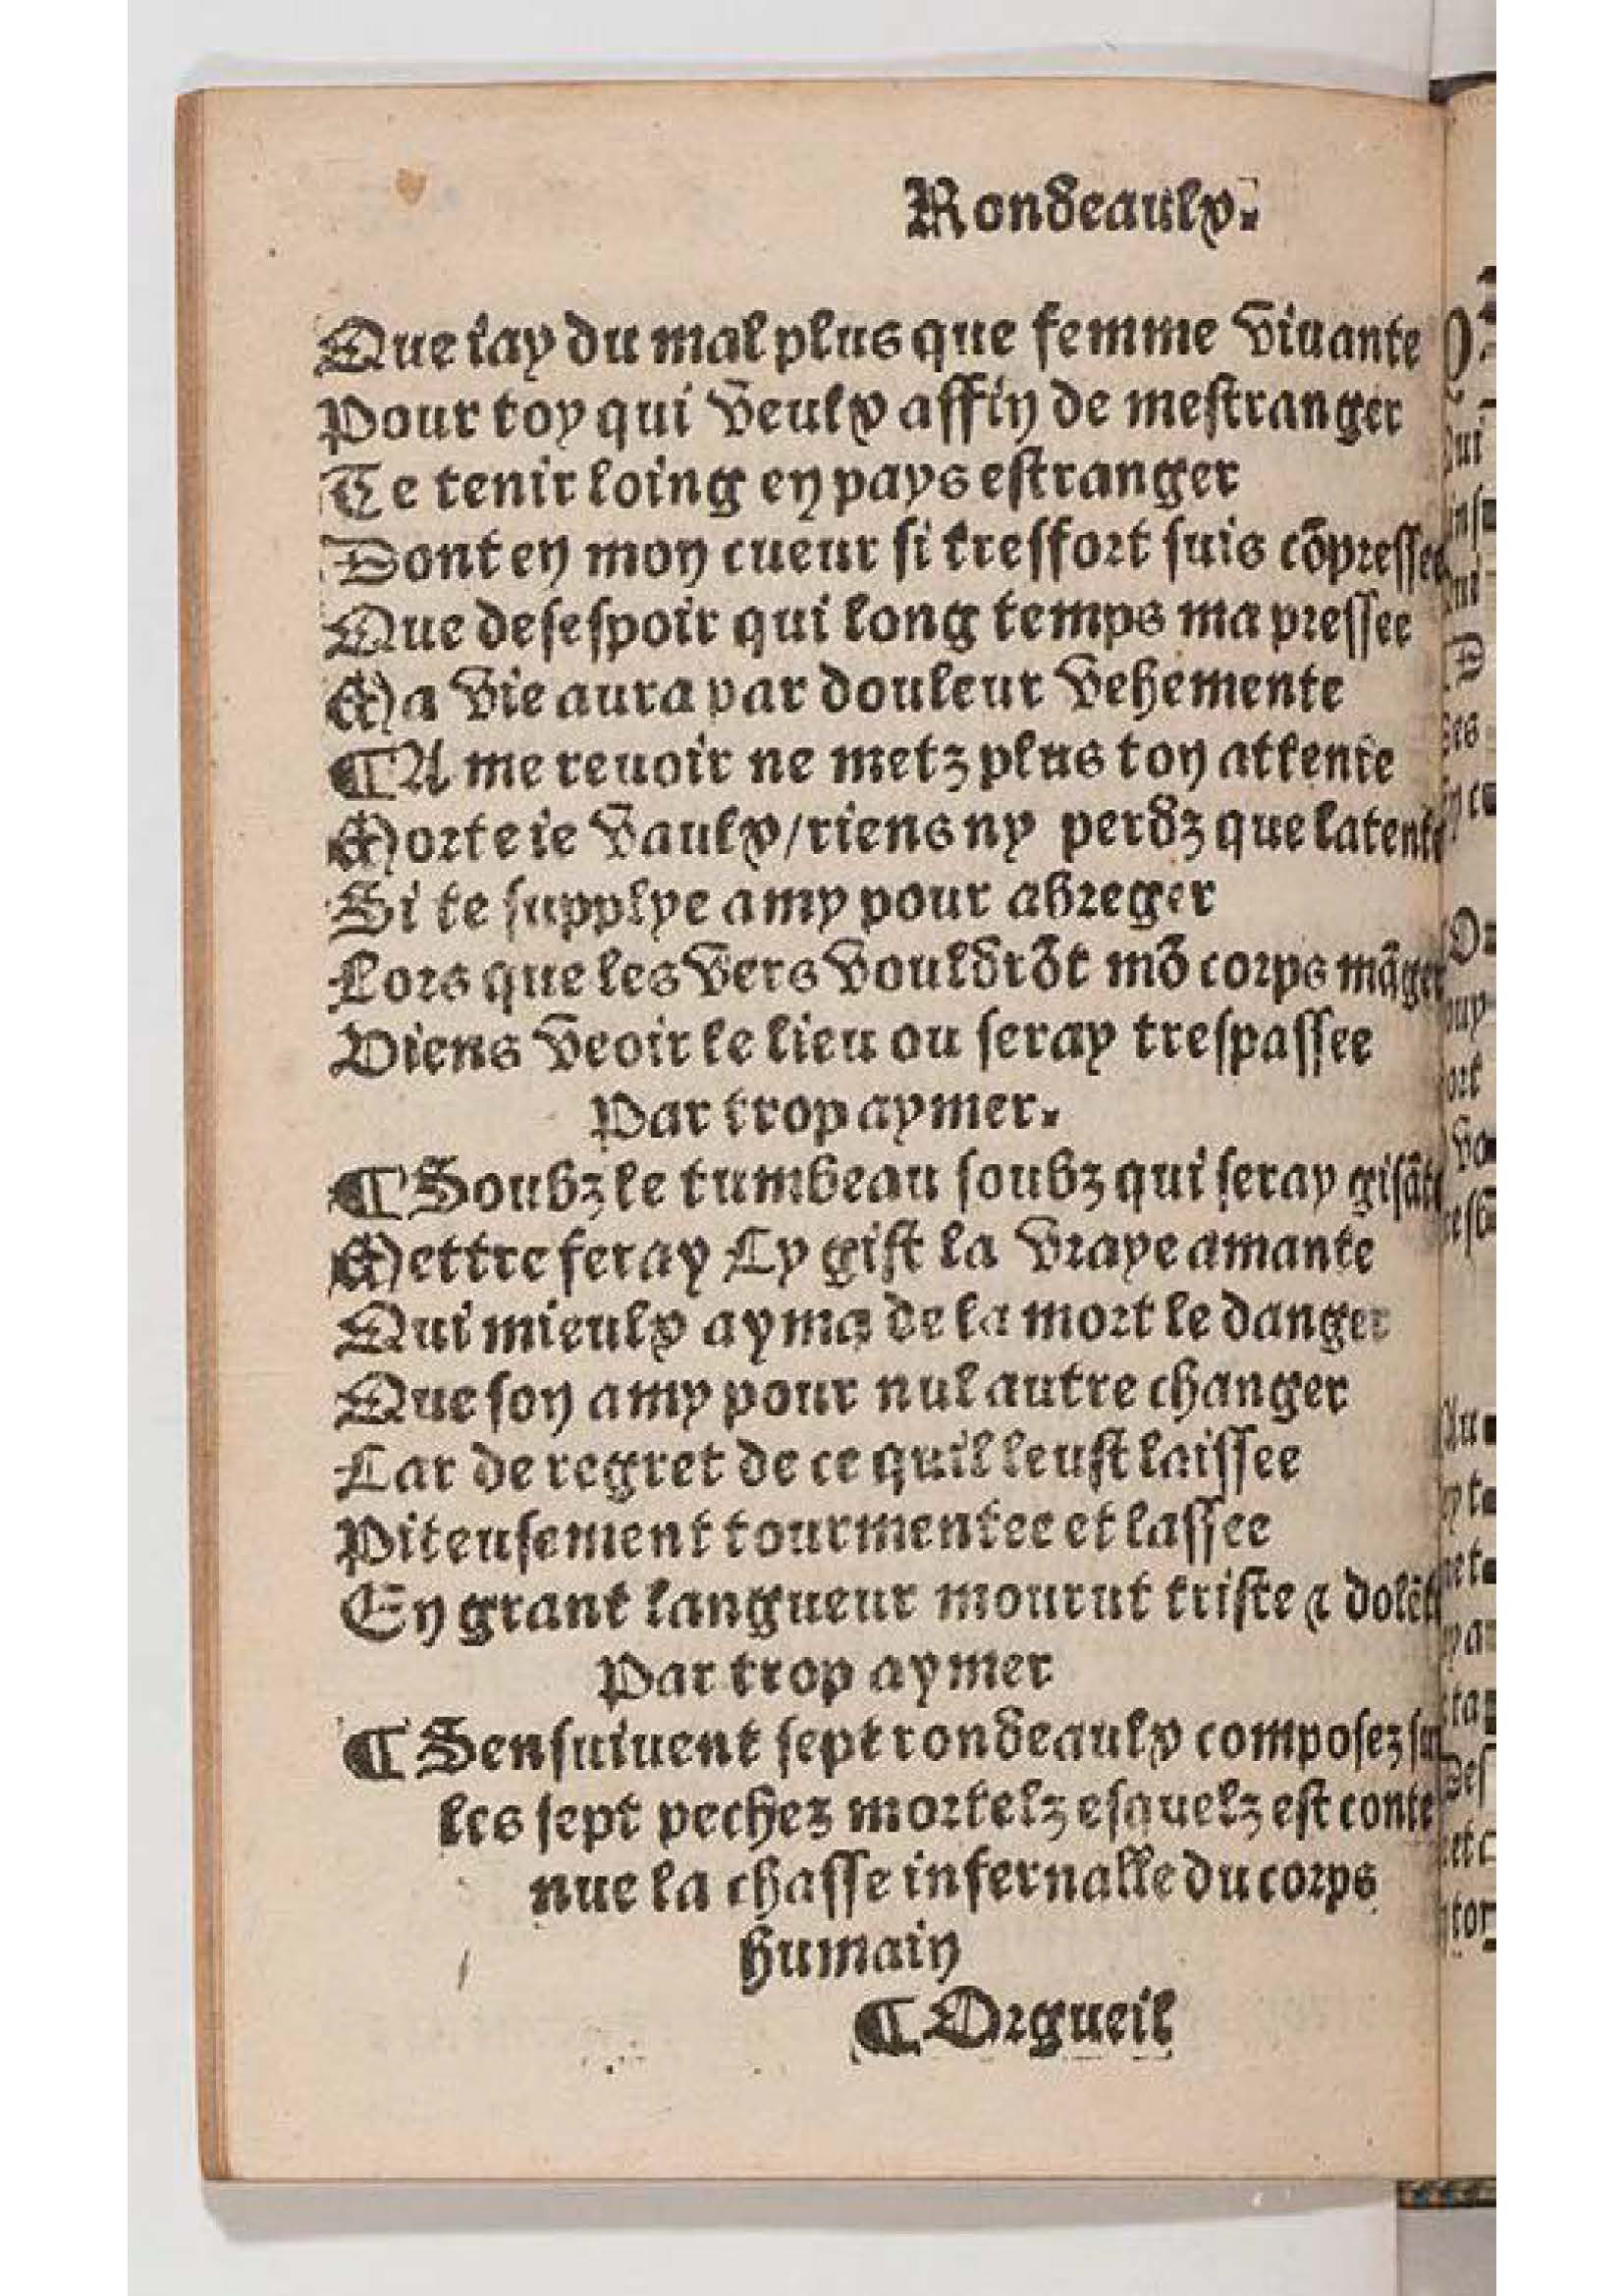 Rondeaulx.
Que iay du mal plus que femme viuante
Pour toy qui veulx affin de mestranger
Te tenir loing en pays estranger
Dont en mon cueur si tresfort suis cõpressee
Que desespoir qui long temps ma pressee
Ma vie aura par douleur vehemente
¶ A me reuoir ne metz plus ton attente
Morte ie vaulx/riens ny perdz que latente
Si te supplye amy pour abreger
Lors que les vers vouldrõt mõ corps mãger
Viens veoir le lieu ou seray trespassee
Par trop aymer.
¶ Soubz le tumbeau soubz qui seray gisãte
Mettre feray Cy gist la vraye amante
Qui mieulx ayma de la mort le danger
Que son amy pour nul autre changer
Car de regret de ce quil leust laissee
Piteusement tourmentee et lassee
En grant langueur mourut triste & dolẽte
Par trop aymer
¶ Sensuiuent sept rondeaulx composez sur
les sept pechez mortelz esquelz est conte
nue la chasse infernalle du corps
humain
¶ Orgueil